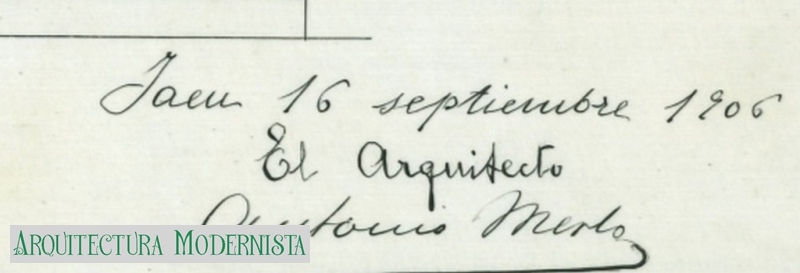 Jaen 16 septiembre 1906
El Arquitecto
Antonio Merlo
ARQUITECTURA MODERNISTA